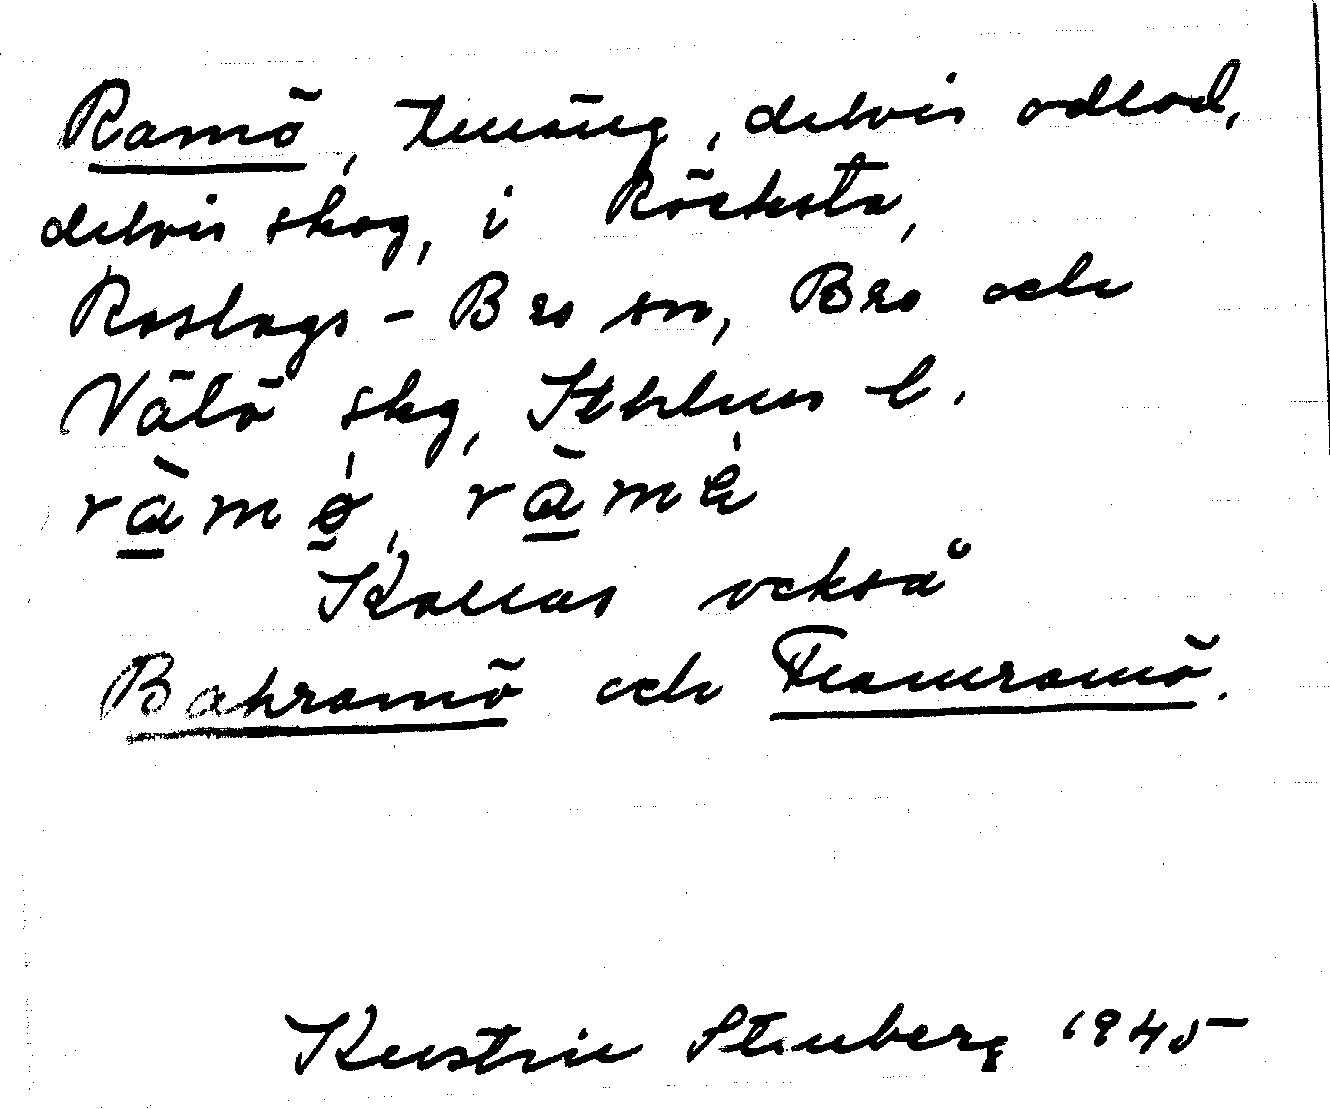 Ramö, terräng, delvis odlad,
delvis skog, i Röcksta,
Roslags-Bro sn, Bro och
Vätö skg, Sthlms l.
ràmǿ, ràmè
Kallas också
Bakramö och Framramö.
Kerstin Stenberg 1945